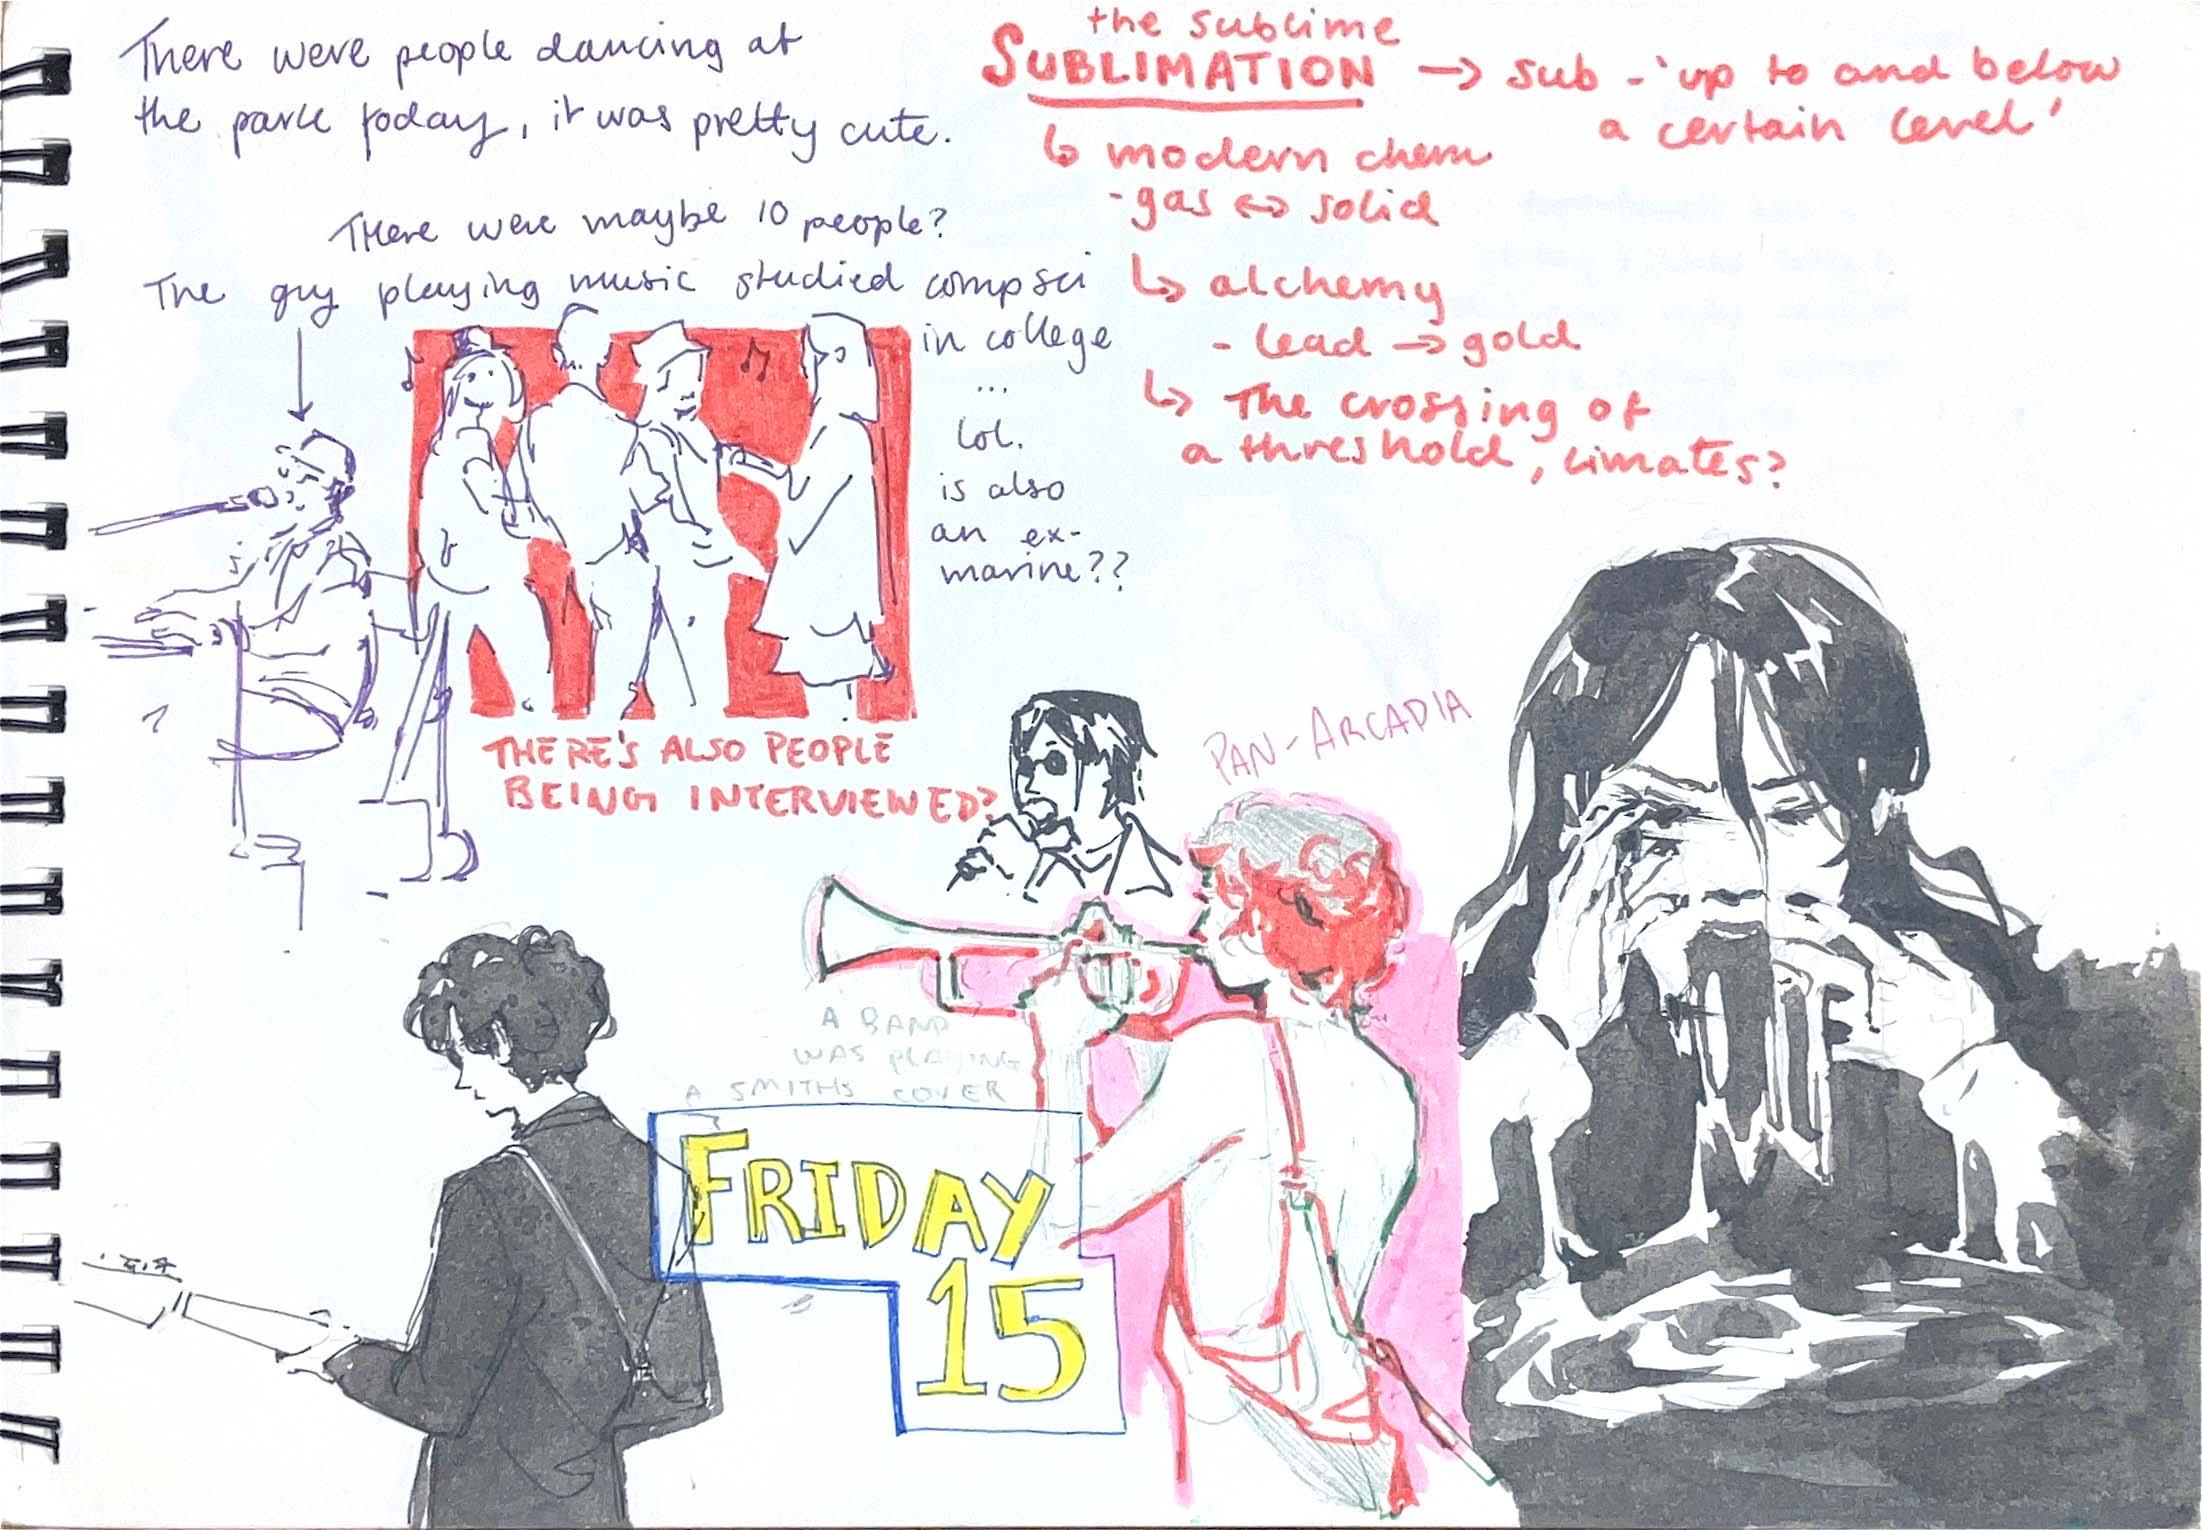 There were people dancing at
the park today, it was pretty cute.
There were maybe 10 people?
The guy playing music studied compsci
in college
...
lol.
is also
an ex-
marine??
THERE'S ALSO PEOPLE
BEING INTERVIEWED?
the sublime
SUBLIMATION → sub - 'up to and below
a certain level'
↳ modern chem
- gas ↔ solid
↳ alchemy
- lead → gold
↳ The crossing of
a threshold, limates?
PAN-ARCADIA
A BAND
WAS PLAYING
A SMITHS COVER
FRIDAY
15